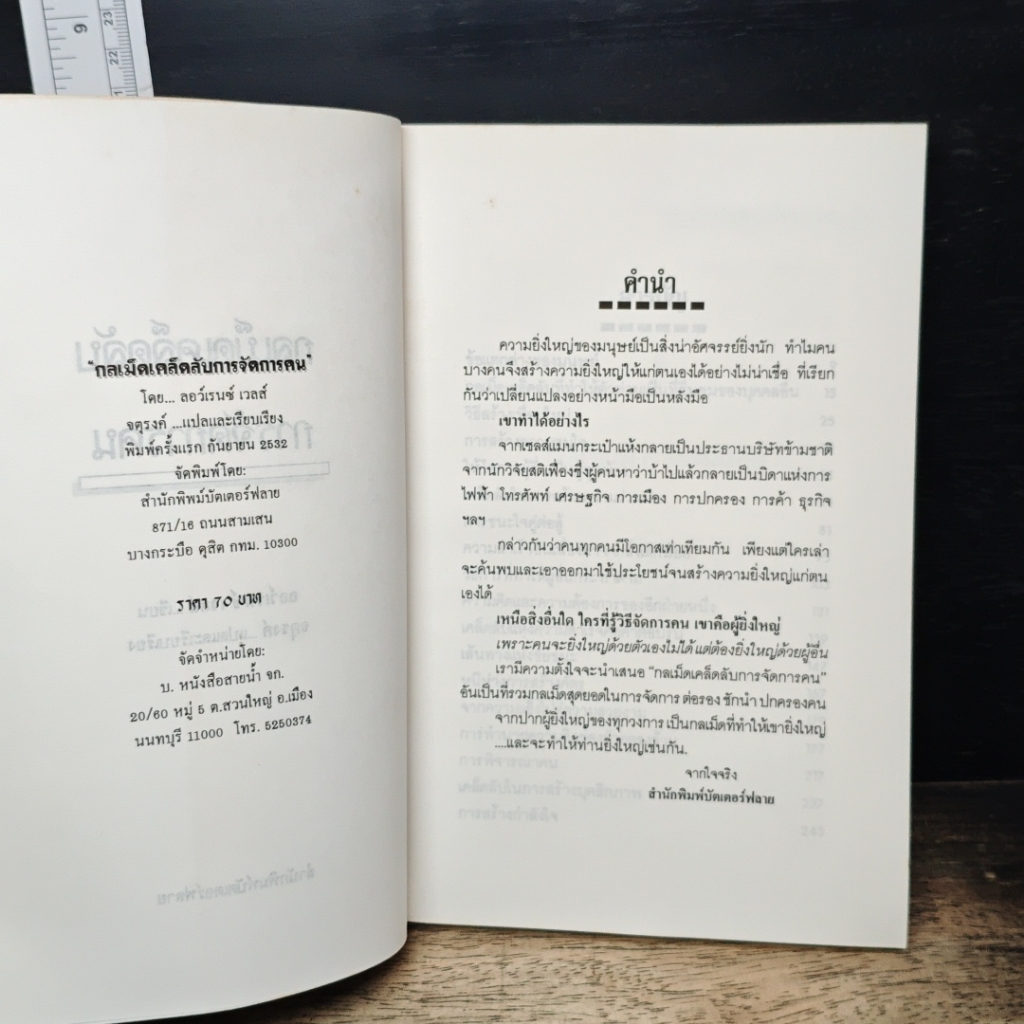 9
23
22
21
"กลเม็ดเคล็ดลับการจัดการคน"
โดย... ลอว์เรนซ์ เวลส์
จตุรงค์ ...แปลและเรียบเรียง
พิมพ์ครั้งแรก กันยายน 2532
จัดพิมพ์โดย:
สำนักพิพม์บัตเตอร์ฟลาย
871/16 ถนนสามเสน
บางกระบือ ดุสิต กทม. 10300
ราคา 70 บาท
จัดจำหน่ายโดย:
บ. หนังสือสายน้ำ จก.
20/60 หมู่ 5 ต.สวนใหญ่ อ.เมือง
นนทบุรี 11000 โทร. 5250374
คำนำ
ความยิ่งใหญ่ของมนุษย์เป็นสิ่งน่าอัศจรรย์ยิ่งนัก ทำไมคน
บางคนจึงสร้างความยิ่งใหญ่ให้แก่ตนเองได้อย่างไม่น่าเชื่อ ที่เรียก
กันว่าเปลี่ยนแปลงอย่างหน้ามือเป็นหลังมือ
เขาทำได้อย่างไร
จากเซลส์แมนกระเป๋าแห้งกลายเป็นประธานบริษัทข้ามชาติ
จากนักวิจัยสติเฟื่องซึ่งผู้คนหาว่าบ้าไปแล้วกลายเป็นบิดาแห่งการ
ไฟฟ้า โทรศัพท์ เศรษฐกิจ การเมือง การปกครอง การค้า ธุรกิจ
ฯลฯ
กล่าวกันว่าคนทุกคนมีโอกาสเท่าเทียมกัน เพียงแต่ใครเล่า
จะค้นพบและเอาออกมาใช้ประโยชน์จนสร้างความยิ่งใหญ่แก่ตน
เองได้
เหนือสิ่งอื่นใด ใครที่รู้วิธีจัดการคน เขาคือผู้ยิ่งใหญ่
เพราะคนจะยิ่งใหญ่ด้วยตัวเองไม่ได้ แต่ต้องยิ่งใหญ่ด้วยผู้อื่น
เรามีความตั้งใจจะนำเสนอ "กลเม็ดเคล็ดลับการจัดการคน"
อันเป็นที่รวมกลเม็ดสุดยอดในการจัดการ ต่อรอง ชักนำ ปกครองคน
จากปากผู้ยิ่งใหญ่ของทุกวงการ เป็นกลเม็ดที่ทำให้เขายิ่งใหญ่
....และจะทำให้ท่านยิ่งใหญ่เช่นกัน.
จากใจจริง
สำนักพิมพ์บัตเตอร์ฟลาย